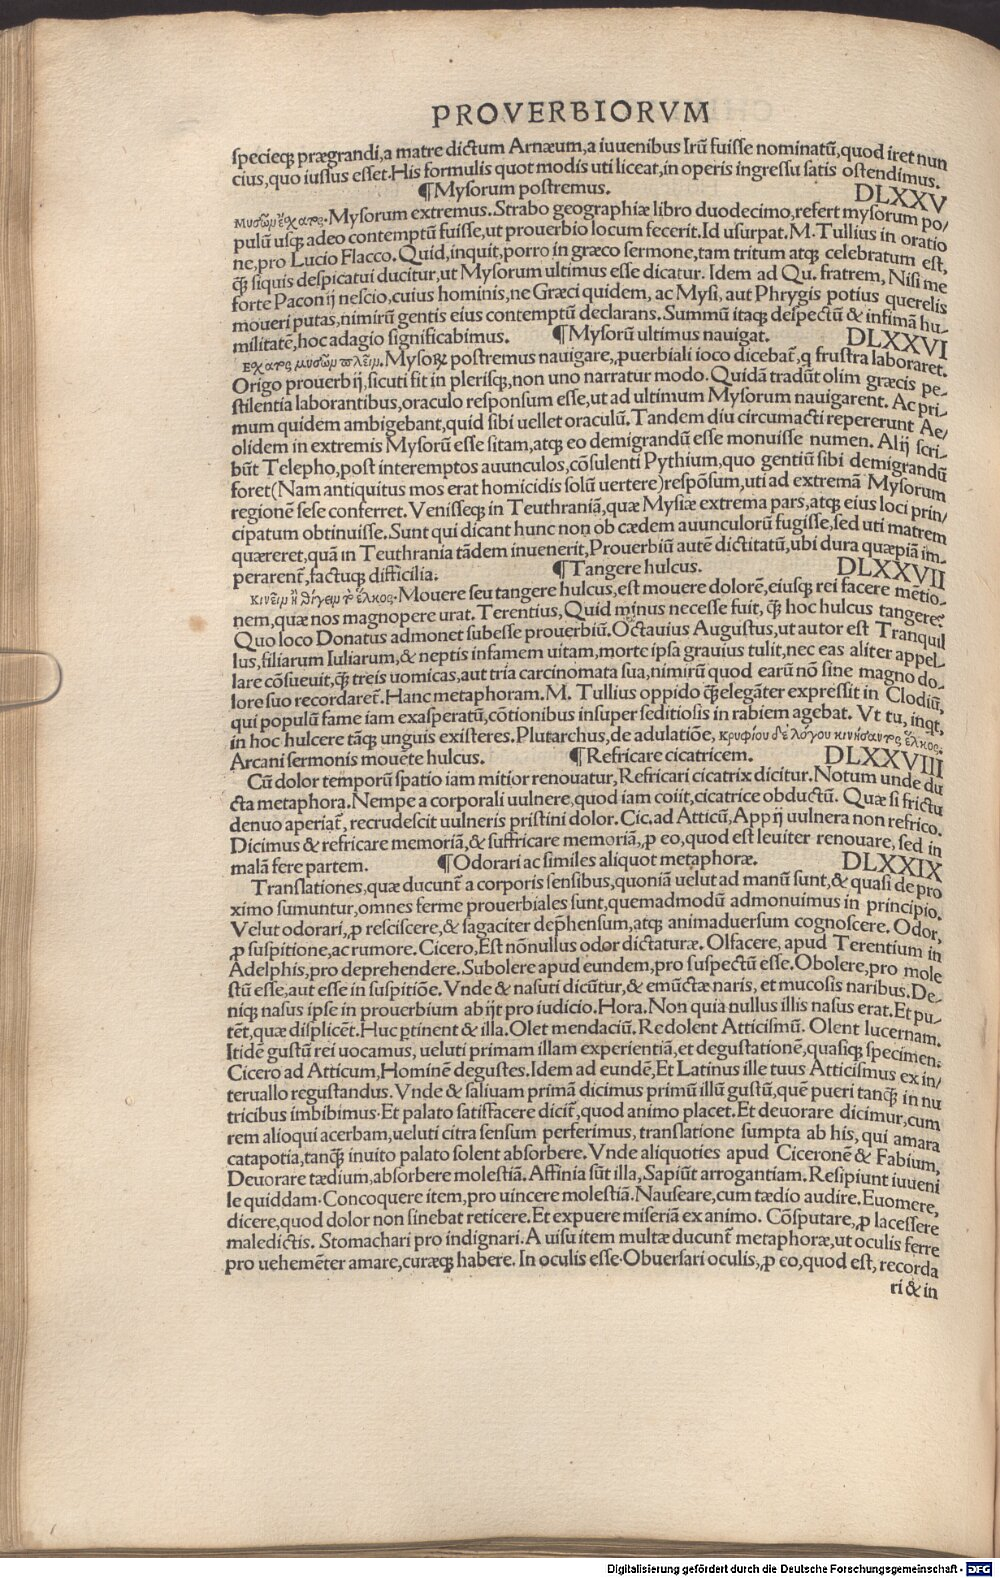 PROVERBIORVM
specieq; prægrandi,a matre dictum Arnæum,a iuuenibus Irũ fuisse nominatũ,quod iret nun
cius,quo iussus esset.His formulis quot modis uti liceat,in operis ingressu satis ostendimus.
¶Mysorum postremus. DLXXV
μυσῶμ ἔχατος.Mysorum extremus.Strabo geographiæ libro duodecimo,refert mysorum po/
pulũ usq; adeo contemptũ fuisse,ut prouerbio locum fecerit.Id usurpat.M.Tullius in oratio
ne,pro Lucio Flacco.Quid,inquit,porro in græco sermone,tam tritum atq; celebratum est,
q̃ siquis despicatui ducitur,ut Mysorum ultimus esse dicatur. Idem ad Qu. fratrem, Nisi me
forte Paconij nescio,cuius hominis,ne Græci quidem, ac Mysi, aut Phrygis potius querelis
moueri putas,nimirũ gentis eius contemptũ declarans. Summũ itaq; despectũ & infimã hu-
militatẽ,hoc adagio significabimus. ¶Mysorũ ultimus nauigat. DLXXVI
ἔχατος μυσῶμ πλεῖμ.Mysoꝝ postremus nauigare,ꝓuerbiali ioco dicebat̃,q frustra laboraret.
Origo prouerbij,sicuti fit in plerisq;,non uno narratur modo. Quidã tradũt olim græcis pe-
stilentia laborantibus,oraculo responsum esse,ut ad ultimum Mysorum nauigarent. Ac pri-
mum quidem ambigebant,quid sibi uellet oraculũ.Tandem diu circumacti repererunt Ae/
olidem in extremis Mysorũ esse sitam,atq; eo demigrandũ esse monuisse numen. Alij scri-
bũt Telepho,post interemptos auunculos,cõsulenti Pythium,quo gentiũ sibi demigrandũ
foret(Nam antiquitus mos erat homicidis solũ uertere)respõsum,uti ad extremã Mysorum
regionẽ sese conferret. Venisseq; in Teuthraniã,quæ Mysiæ extrema pars,atq; eius loci prin/
cipatum obtinuisse.Sunt qui dicant hunc non ob cædem auunculorũ fugisse,sed uti matrem
quæreret,quã in Teuthrania tãdem inuenerit,Prouerbiũ autẽ dictitatũ,ubi dura quæpiã im-
perarent̃,factuq; difficilia. ¶Tangere hulcus. DLXXVII
κινεῖμ ἢ θίγειμ τὸ ἕλκος.Mouere seu tangere hulcus,est mouere dolorẽ,eiusq; rei facere mẽtio-
nem,quæ nos magnopere urat. Terentius,Quid minus necesse fuit,q̃ hoc hulcus tangere?
Quo loco Donatus admonet subesse prouerbiũ.Octauius Augustus,ut autor est Tranquil
lus,filiarum Iuliarum,& neptis infamem uitam,morte ipsa grauius tulit,nec eas aliter appel-
lare cõsueuit,q̃ treis uomicas,aut tria carcinomata sua,nimirũ quod earũ nõ sine magno do-
lore suo recordaret̃.Hanc metaphoram.M. Tullius oppido q̃elegãter expressit in Clodiũ,
qui populũ fame iam exasperatũ,cõtionibus insuper seditiosis in rabiem agebat. Vt tu, inqt,
in hoc hulcere tãq; unguis existeres.Plutarchus,de adulatiõe, κρυφίου δὲ λόγου κινήσαντος ἕλκος.
Arcani sermonis mouete hulcus. ¶Refricare cicatricem. DLXXVIII
Cũ dolor temporũ spatio iam mitior renouatur,Refricari cicatrix dicitur.Notum unde du
cta metaphora.Nempe a corporali uulnere,quod iam coiit,cicatrice obductũ. Quæ si frictu
denuo aperiat̃, recrudescit uulneris pristini dolor.Cic.ad Atticũ,Appij uulnera non refrico.
Dicimus & refricare memoriã,& suffricare memoriã,ꝓ eo,quod est leuiter renouare, sed in
malã fere partem. ¶Odorari ac similes aliquot metaphoræ. DLXXIX
Translationes,quæ ducunt̃ a corporis sensibus,quoniã uelut ad manũ sunt,& quasi de pro
ximo sumuntur,omnes ferme prouerbiales sunt,quemadmodũ admonuimus in principio.
Velut odorari,ꝓ resciscere,& sagaciter dep̃hensum,atq; animaduersum cognoscere. Odor,
ꝓ suspitione,ac rumore. Cicero,Est nõnullus odor dictaturæ. Olfacere, apud Terentium in
Adelphis,pro deprehendere.Subolere apud eundem,pro suspectũ esse.Obolere,pro mole
stũ esse,aut esse in suspitiõe. Vnde & nasuti dicũtur,& emũctæ naris, et mucosis naribus.De-
niq; nasus ipse in prouerbium abijt pro iudicio.Hora.Non quia nullus illis nasus erat.Et pu-
tẽt,quæ displicẽt.Huc ꝑtinent & illa.Olet mendaciũ.Redolent Atticismũ. Olent lucernam.
Itidẽ gustũ rei uocamus, ueluti primam illam experientiã,et degustationẽ,quasiq; specimen.
Cicero ad Atticum,Hominẽ degustes.Idem ad eundẽ,Et Latinus ille tuus Atticismus ex in/
teruallo regustandus. Vnde & saliuam primã dicimus primũ illũ gustũ,quẽ pueri tanq̃ in nu
tricibus imbibimus.Et palato satisfacere dicit̃,quod animo placet.Et deuorare dicimur,cum
rem alioqui acerbam,ueluti citra sensum perferimus, translatione sumpta ab his, qui amara
catapotia,tanq̃ inuito palato solent absorbere. Vnde aliquoties apud Ciceronẽ & Fabium,
Deuorare tædium,absorbere molestiã.Affinia sũt illa,Sapiũt arrogantiam.Resipiunt iuueni
le quiddam.Concoquere item,pro uincere molestiã.Nauseare,cum tædio audire.Euomere,
dicere,quod dolor non sinebat reticere.Et expuere miseriã ex animo. Cõsputare,ꝓ lacessere
maledictis. Stomachari pro indignari.A uisu item multæ ducunt̃ metaphoræ,ut oculis ferre
pro uehemẽter amare,curæq; habere. In oculis esse.Obuersari oculis,ꝓ eo,quod est, recorda
ri & in
Digitalisierung gefördert durch die Deutsche Forschungsgemeinschaft - DFG